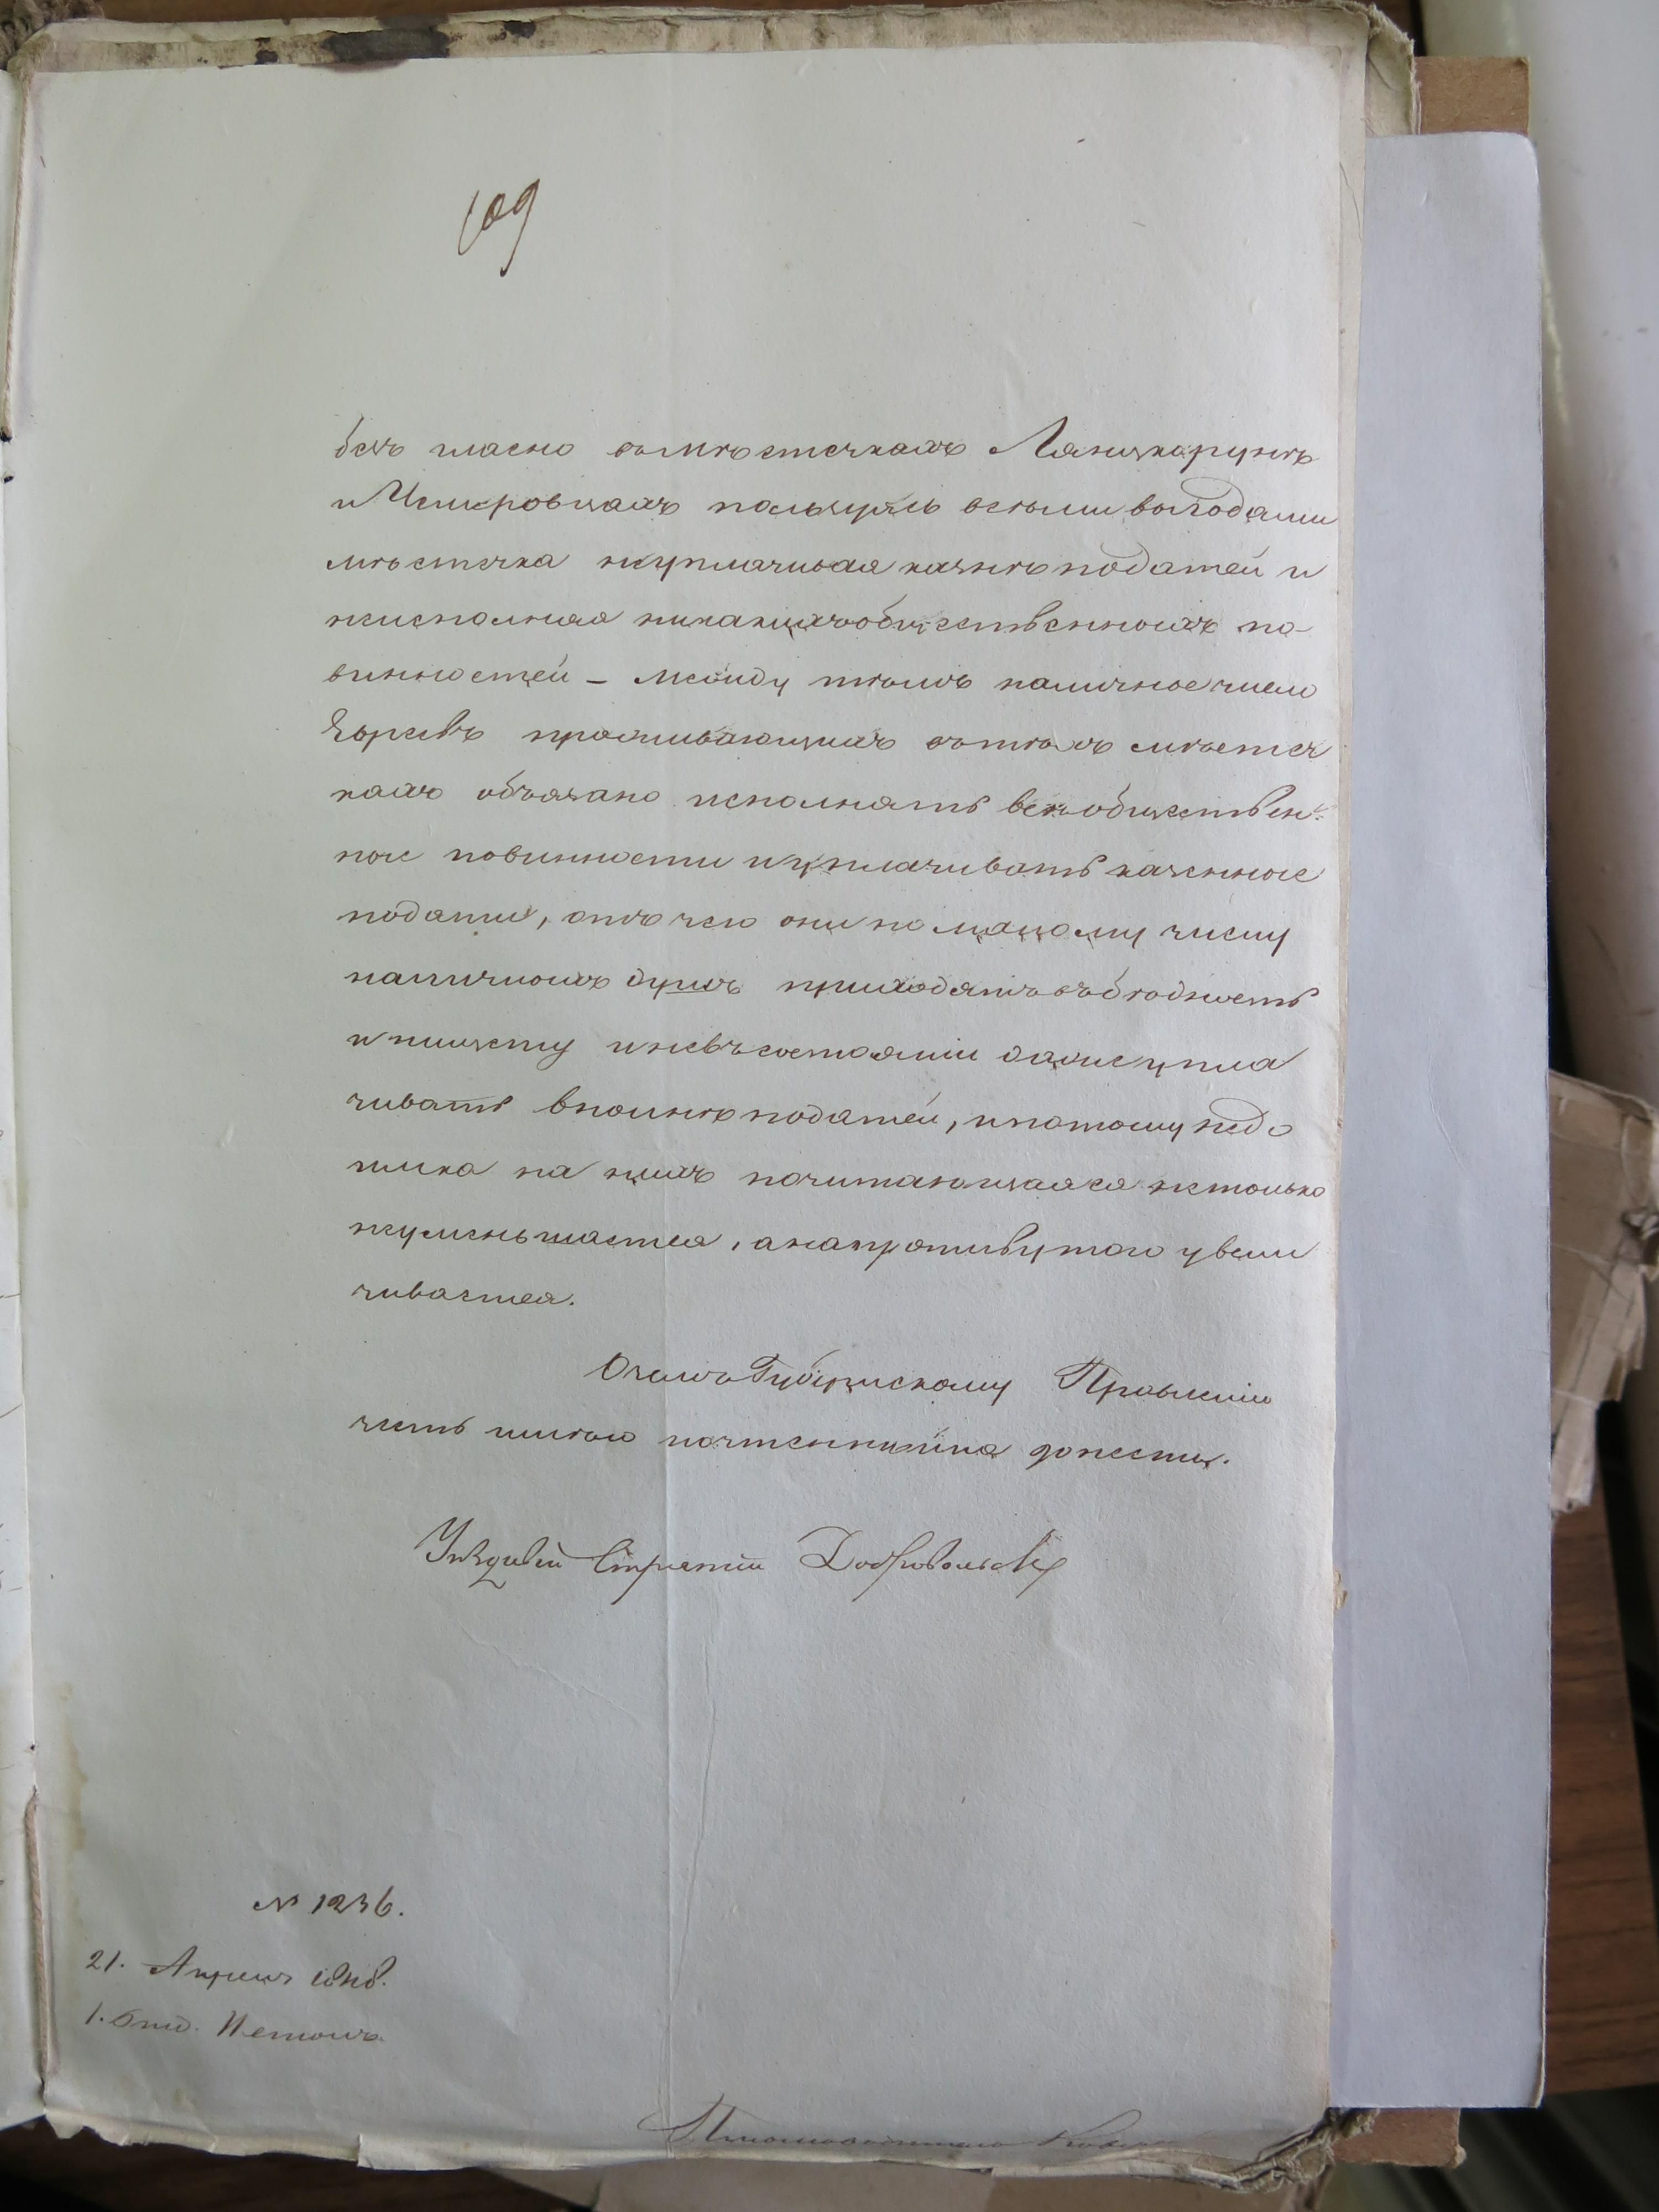 109
безъ гласно въ мѣстечкахъ Лянцкорунѣ
и Чемеровцахъ пользуясь всѣми выгодами
мѣстечка неуплачивая казнѣ податей и
неисполняя никакихъ общественныхъ по-
винностей – между тѣмъ наличное число
Евреевъ проживающихъ въ тѣхъ мѣстеч
кахъ обязано исполнять всѣ обществен-
ные повинности и уплачивать казенные
подати, отъ чего они по малому числу
наличныхъ душъ приходятъ въ бѣдность
и нищету и невъ состояніи даже упла
чивать вполнѣ податей, и потому недо
имка на нихъ почитающаяся нетолько
неуменьшается, а напротивъ того увели
чивается.
О чемъ Губернскому Правленію
честь имѣю почтеннѣйше донести.
Уѣздный Стряпчій Добровольскій
№ 1236.
21. Апреля
1. Отд.